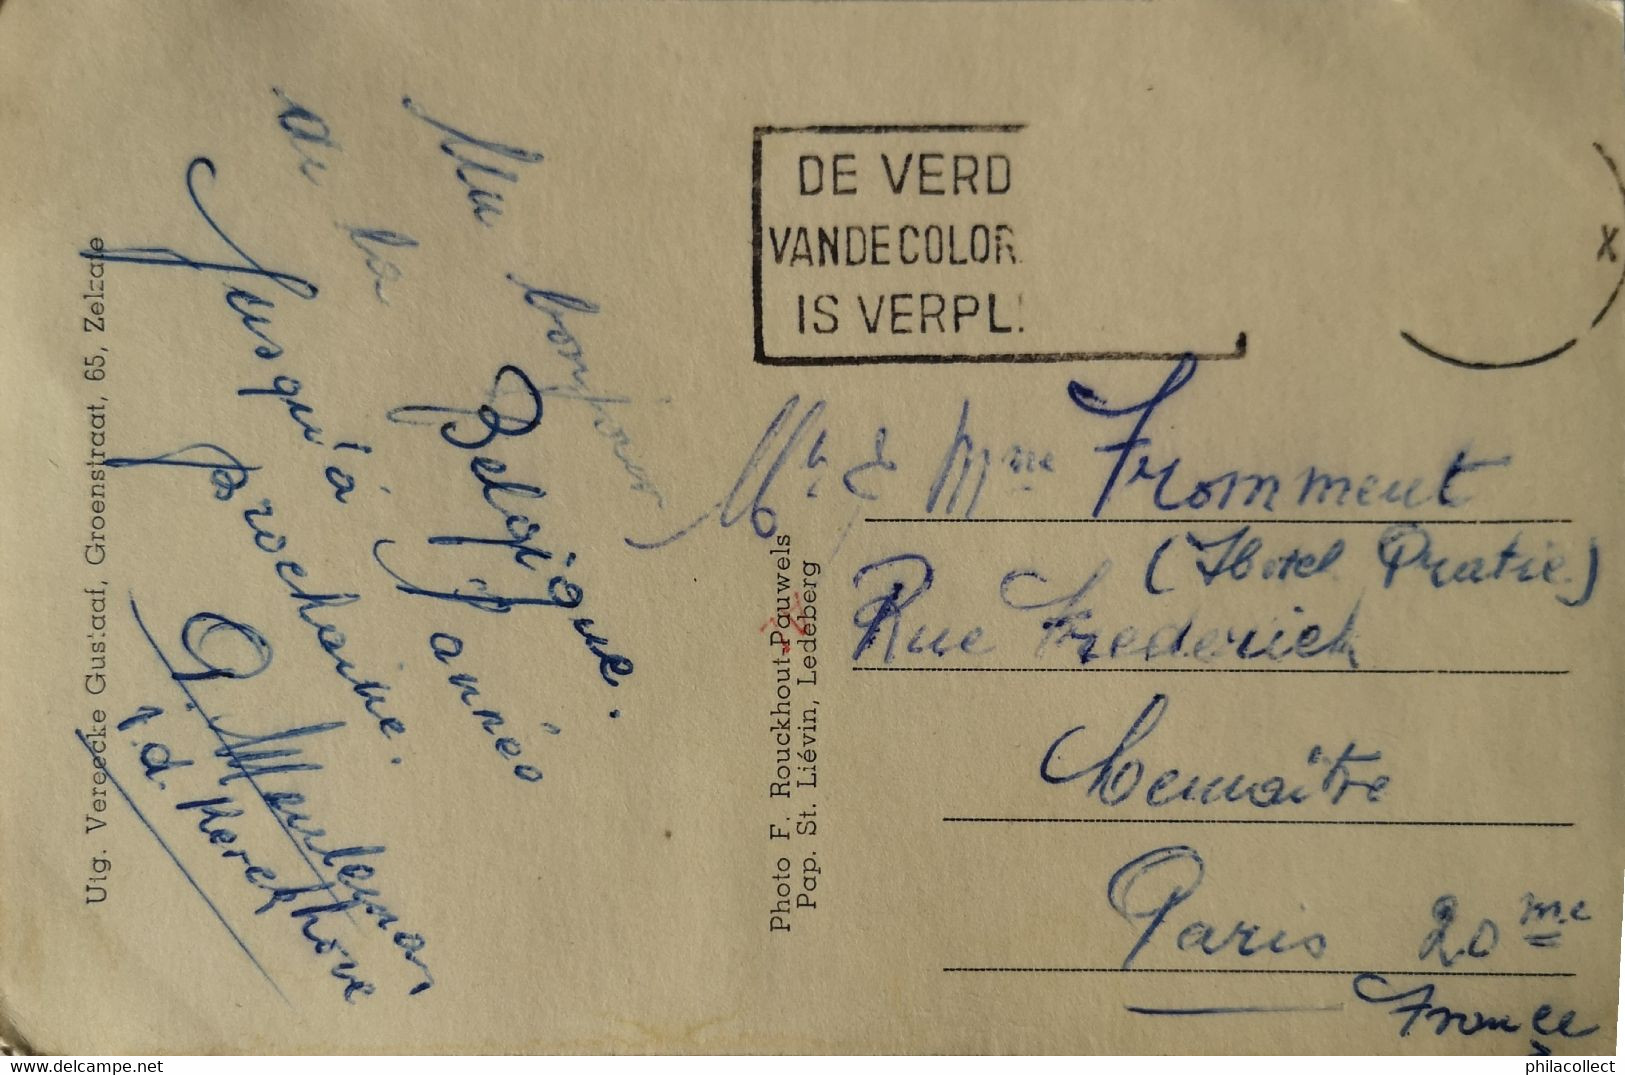 Un bonjour
de la Belgique.
Jusqu'à l'année
prochaine.
G.
v.d. Kerckhove
Uig. Vereecke Gustaaf, Groenstraat, 65, Zelzate
Photo F. Rouckhout-Pauwels
Pap. St. Liévin, Ledeberg
DE VERD
VANDECOLOR
IS VERPL
X
Mr & Mme Fromment
(Hotel Pratic)
Rue Frederick
Lemaître
Paris 20me
France
philacollect